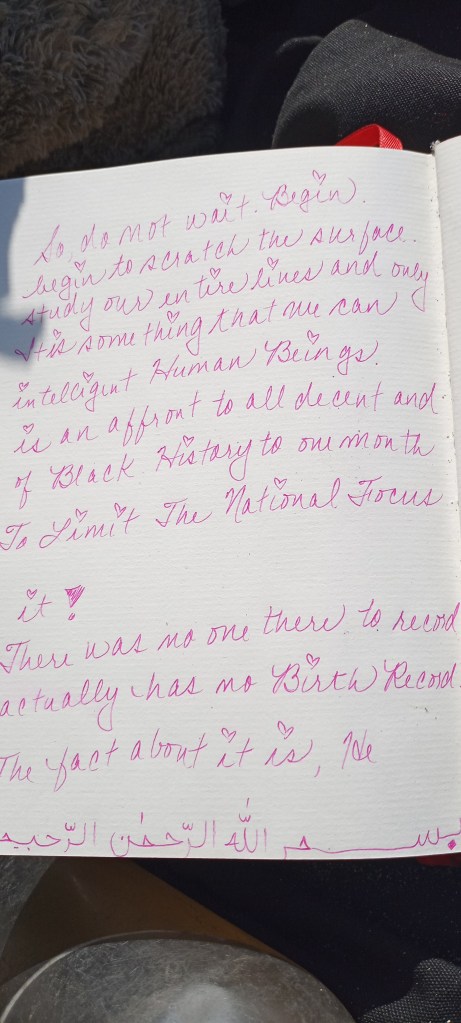 بســـــــم اللّٰه الرّحمٰن الرّحيم
The fact about it is, He
actually has no Birth Record.
There was no one there to record
it!
To Limit The National Focus
of Black History to one month
is an affront to all decent and
intelligent Human Beings.
It is something that we can
study our entire lives and only
begin to scratch the surface.
So, do not wait. Begin.